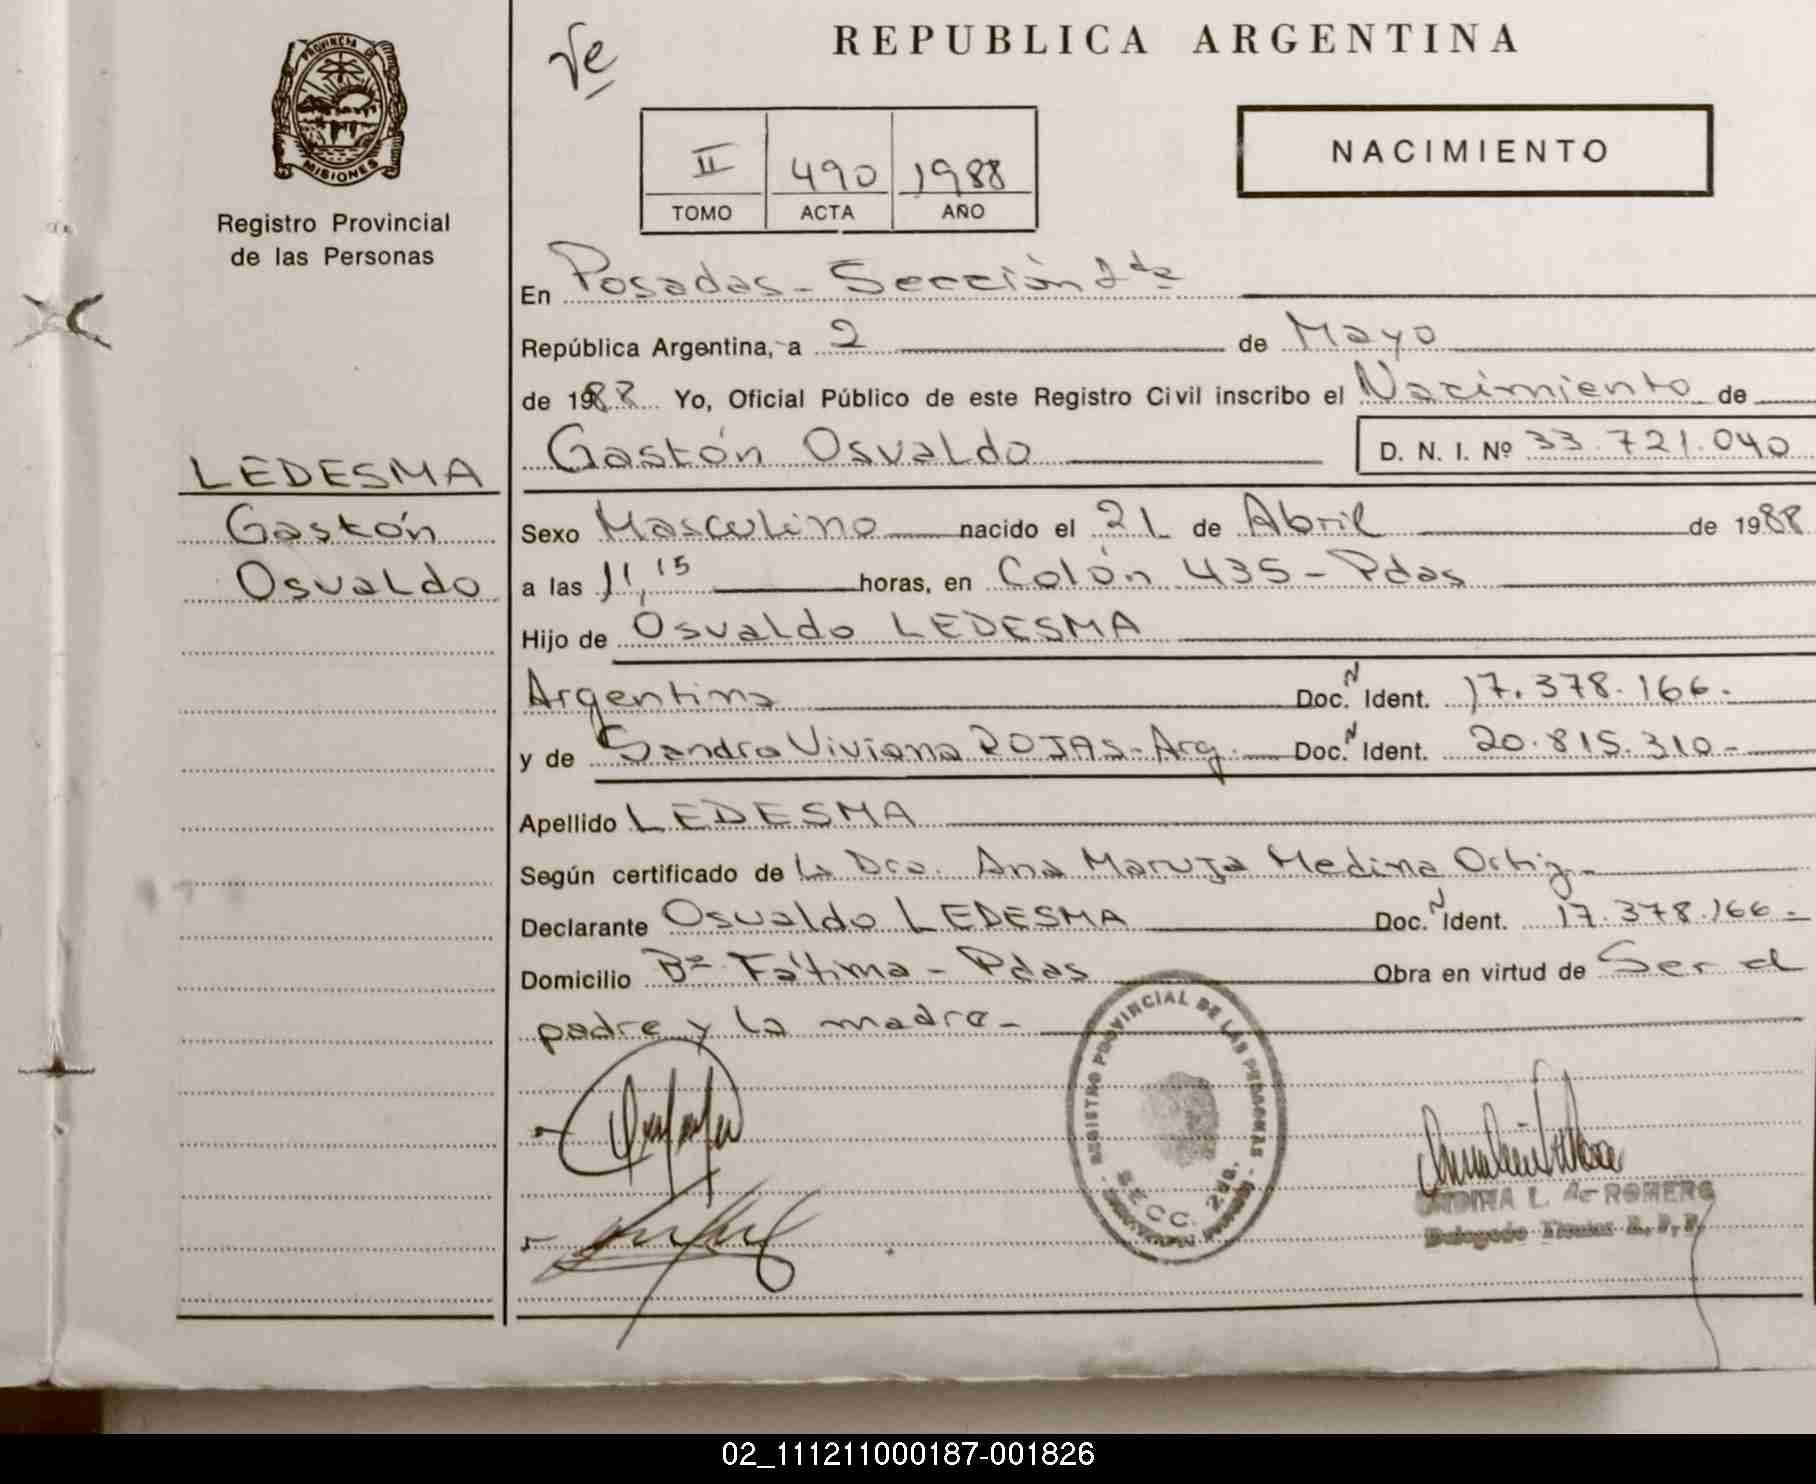 PROVINCIA DE
MISIONES
Registro Provincial
de las Personas
LEDESMA
Gastón
Osvaldo
REPUBLICA ARGENTINA
NACIMIENTO
II 490 1988
TOMO ACTA AÑO
En Posadas - Sección 2da
República Argentina, a 2 de Mayo
de 1988 Yo, Oficial Público de este Registro Civil inscribo el Nacimiento de
Gastón Osvaldo D. N. I. Nº 33.721.040
Sexo Masculino nacido el 21 de Abril de 1988
a las 11,15 horas, en Colón 435 - Pdas
Hijo de Osvaldo LEDESMA
Argentina Doc. N Ident. 17.378.166.
y de Sandra Viviana ROJAS - Arg. Doc. N Ident. 20.815.310 -
Apellido LEDESMA
Según certificado de La Dra. Ana Maruja Medina Ortiz -
Declarante Osvaldo LEDESMA Doc. N Ident. 17.378.166 -
Domicilio Bº Fátima - Pdas Obra en virtud de Ser el
padre y la madre -
REGISTRO PROVINCIAL DE LAS PERSONAS
SECC. 2da.
L. de ROMERO
Delegado Titular R. P. P.
02_111211000187-001826